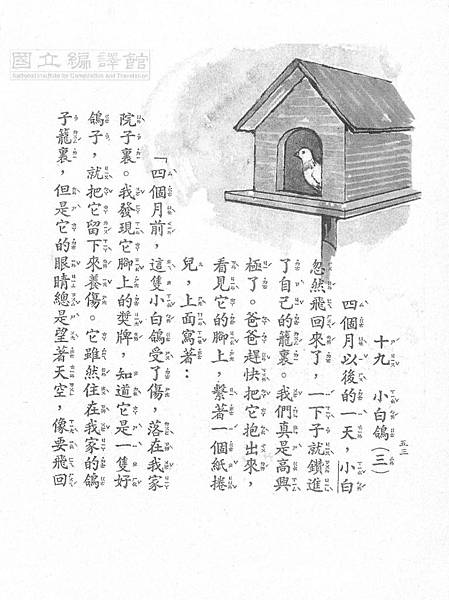 國立編譯館
National Institute for Compilation and Translation
五三
十九 小白鴿(三)
四個月以後的一天,小白
忽然飛回來了,一下子就鑽進
了自己的籠裏。我們真是高興
極了。爸爸趕快把它抱出來,
看見它的腳上,繫著一個紙捲
兒,上面寫著:
「四個月前,這隻小白鴿受了傷,落在我家
院子裏。我發現它腳上的獎牌,知道它是一隻好
鴿子,就把它留下來養傷。它雖然住在我家的鴿
子籠裏,但是它的眼睛總是望著天空,像要飛回